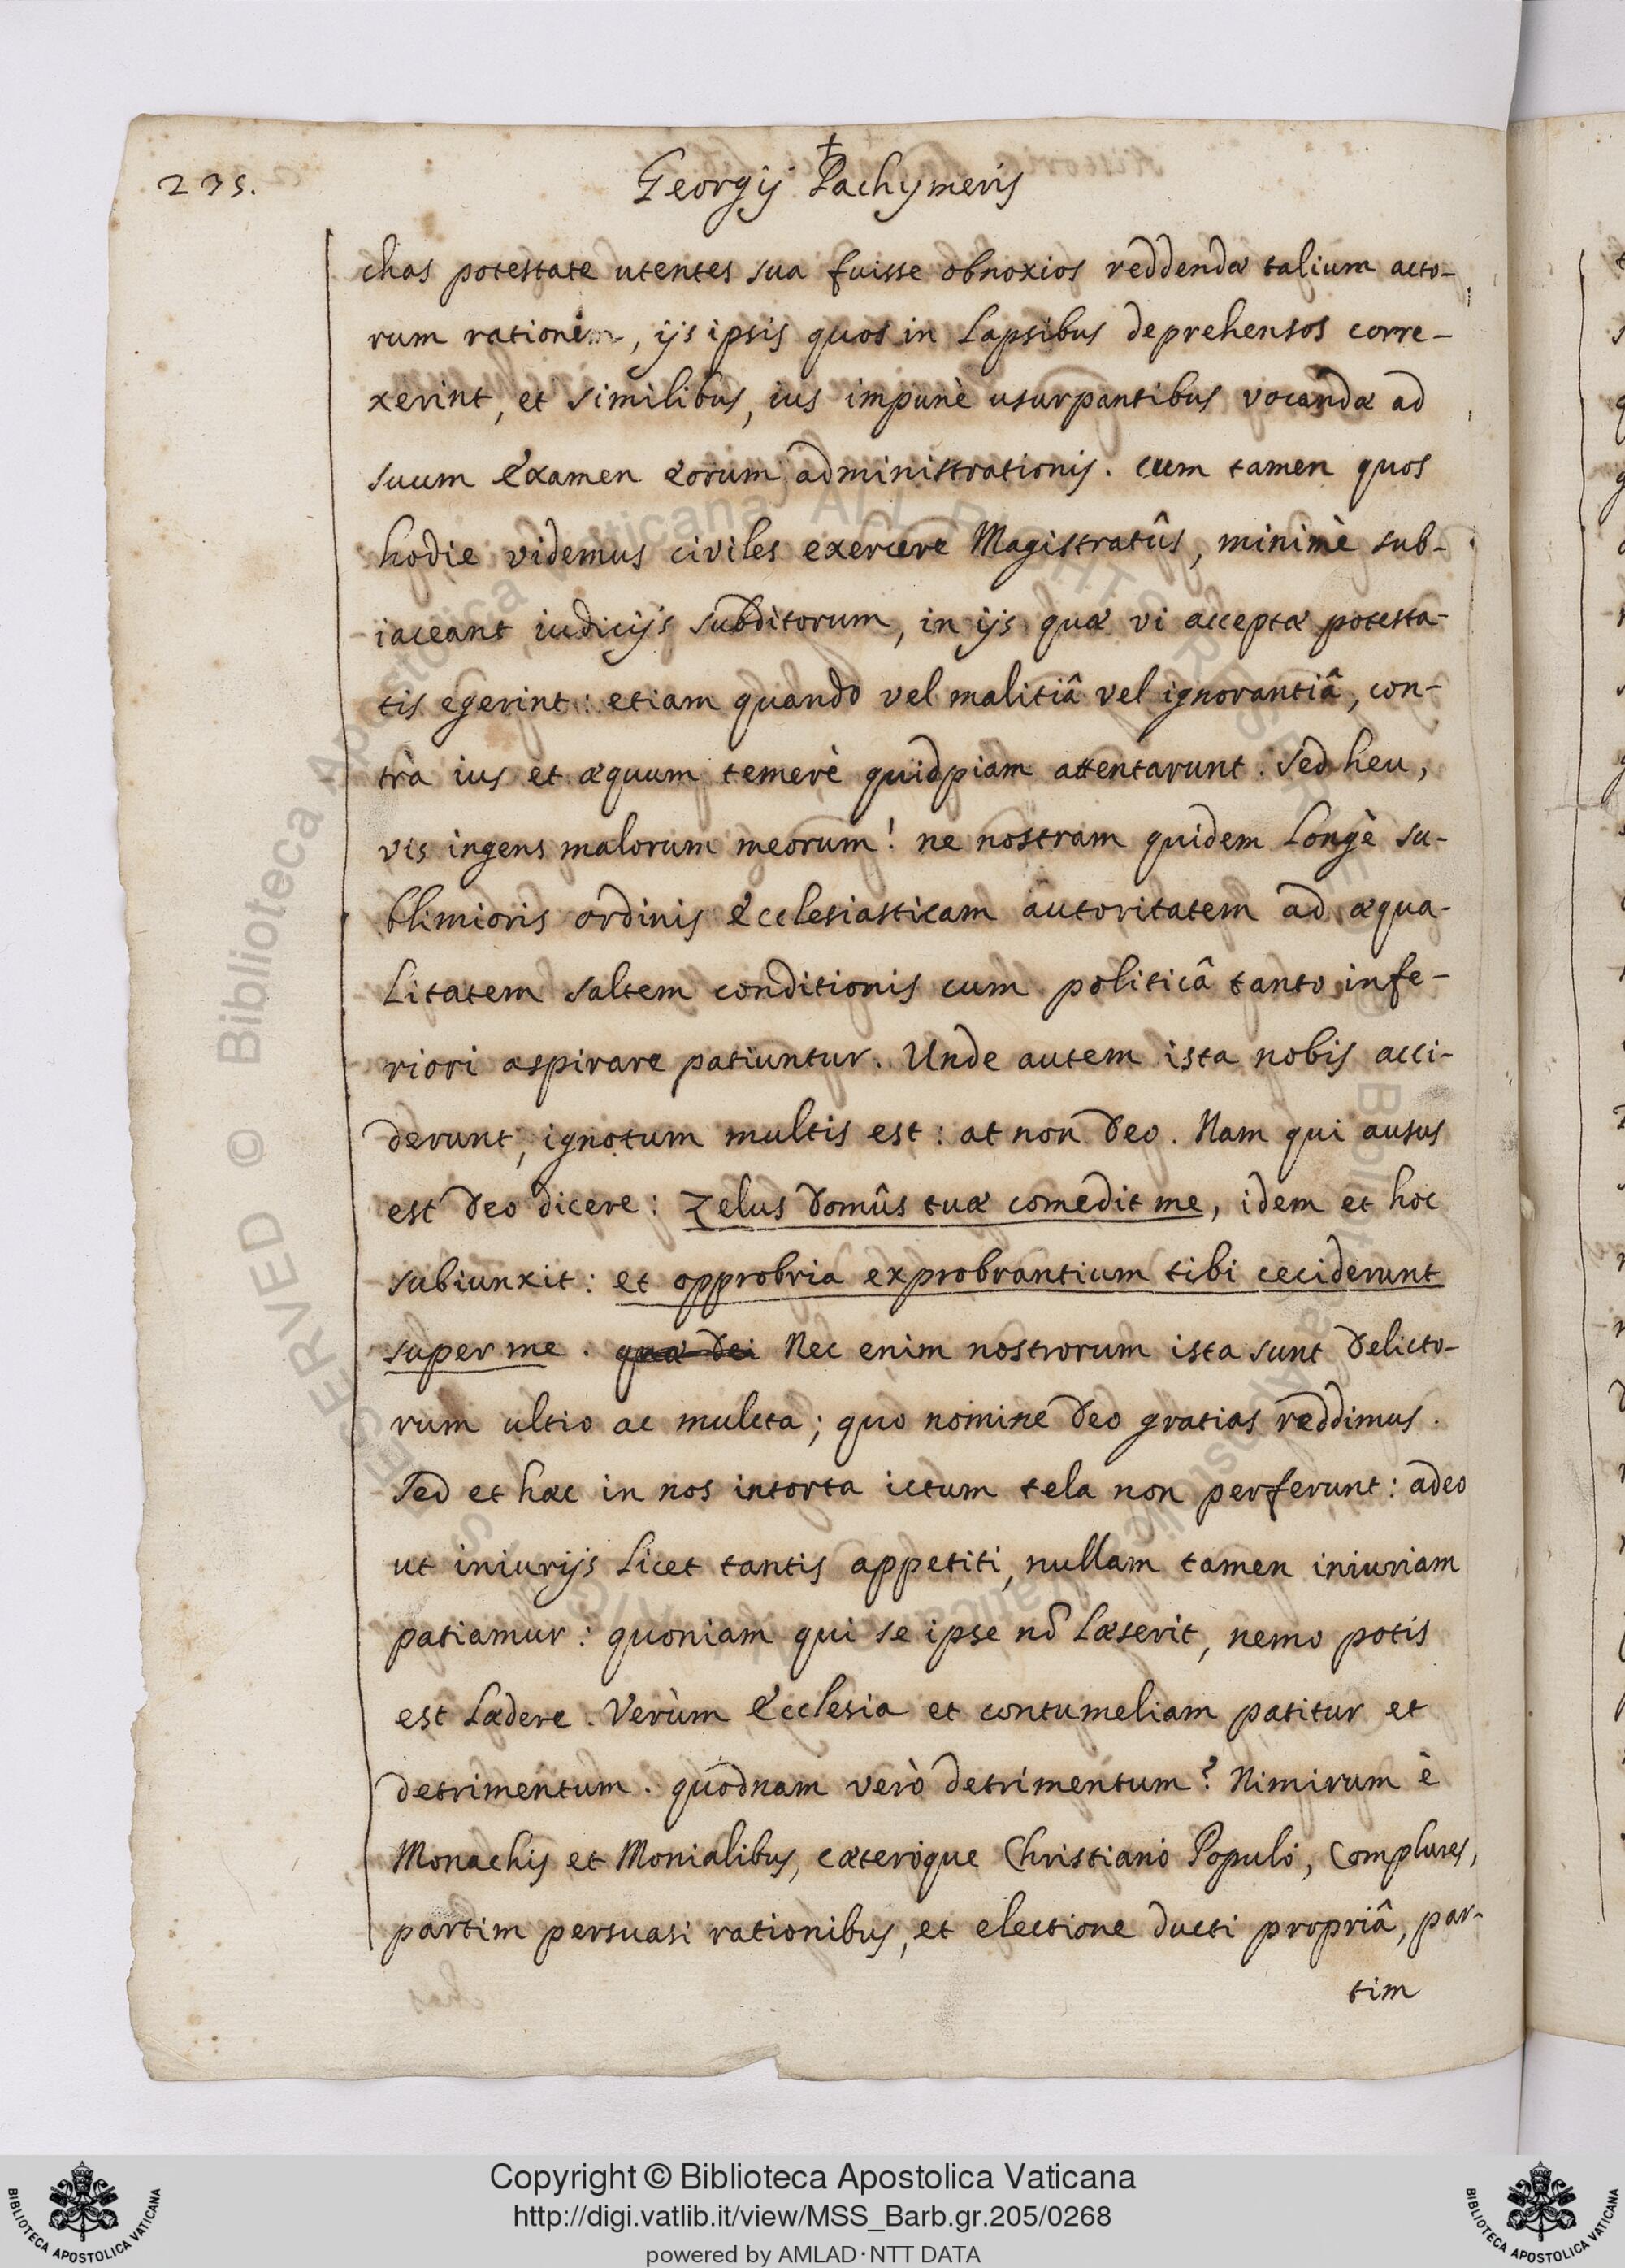 235.
†
Georgij Pachymeris
chas potestate utentes sua fuisse obnoxios reddendæ talium acto-
rum rationem, ijs ipsis quos in lapsibus deprehensos corre-
xerint, et similibus, ius impunè usurpantibus vocandæ ad
suum examen eorum administrationis. cum tamen quos
hodie videmus civiles exercere Magistratûs, minimè sub-
iaceant iudicijs subditorum, in ijs quæ vi acceptæ potesta-
tis egerint: etiam quando vel malitiâ vel ignorantiâ, con-
trà ius et æquum temerè quidpiam attentarunt. Sed heu,
vis ingens malorum meorum! ne nostram quidem longè su-
blimioris ordinis Ecclesiasticam autoritatem ad æqua-
litatem saltem conditionis cum politicâ tanto infe-
riori aspirare patiuntur. Unde autem ista nobis acci-
derunt, ignotum multis est: at non Deo. Nam qui ausus
est Deo dicere: Zelus Domûs tuæ comedit me, idem et hoc
subiunxit: et opprobria exprobrantium tibi ceciderunt
super me. quæ Dei Nec enim nostrorum ista sunt Delicto-
rum ultio ac mulcta; quo nomine Deo gratias reddimus.
Sed et hæc in nos intorta ictum tela non perferunt: adeo
ut iniurijs licet tantis appetiti, nullam tamen iniuriam
patiamur: quoniam qui se ipse nō læserit, nemo potis
est lædere. Verùm Ecclesia et contumeliam patitur et
detrimentum. quodnam verò detrimentum? Nimirum è
Monachis et Monialibus, cæteróque Christiano Populo, Complures,
partim persuasi rationibus, et electione ducti propriâ, par-
tim
© Biblioteca Apostolica Vaticana ALL RIGHTS RESERVED
Copyright © Biblioteca Apostolica Vaticana
http://digi.vatlib.it/view/MSS_Barb.gr.205/0268
powered by AMLAD·NTT DATA
BIBLIOTECA APOSTOLICA VATICANA
BIBLIOTECA APOSTOLICA VATICANA